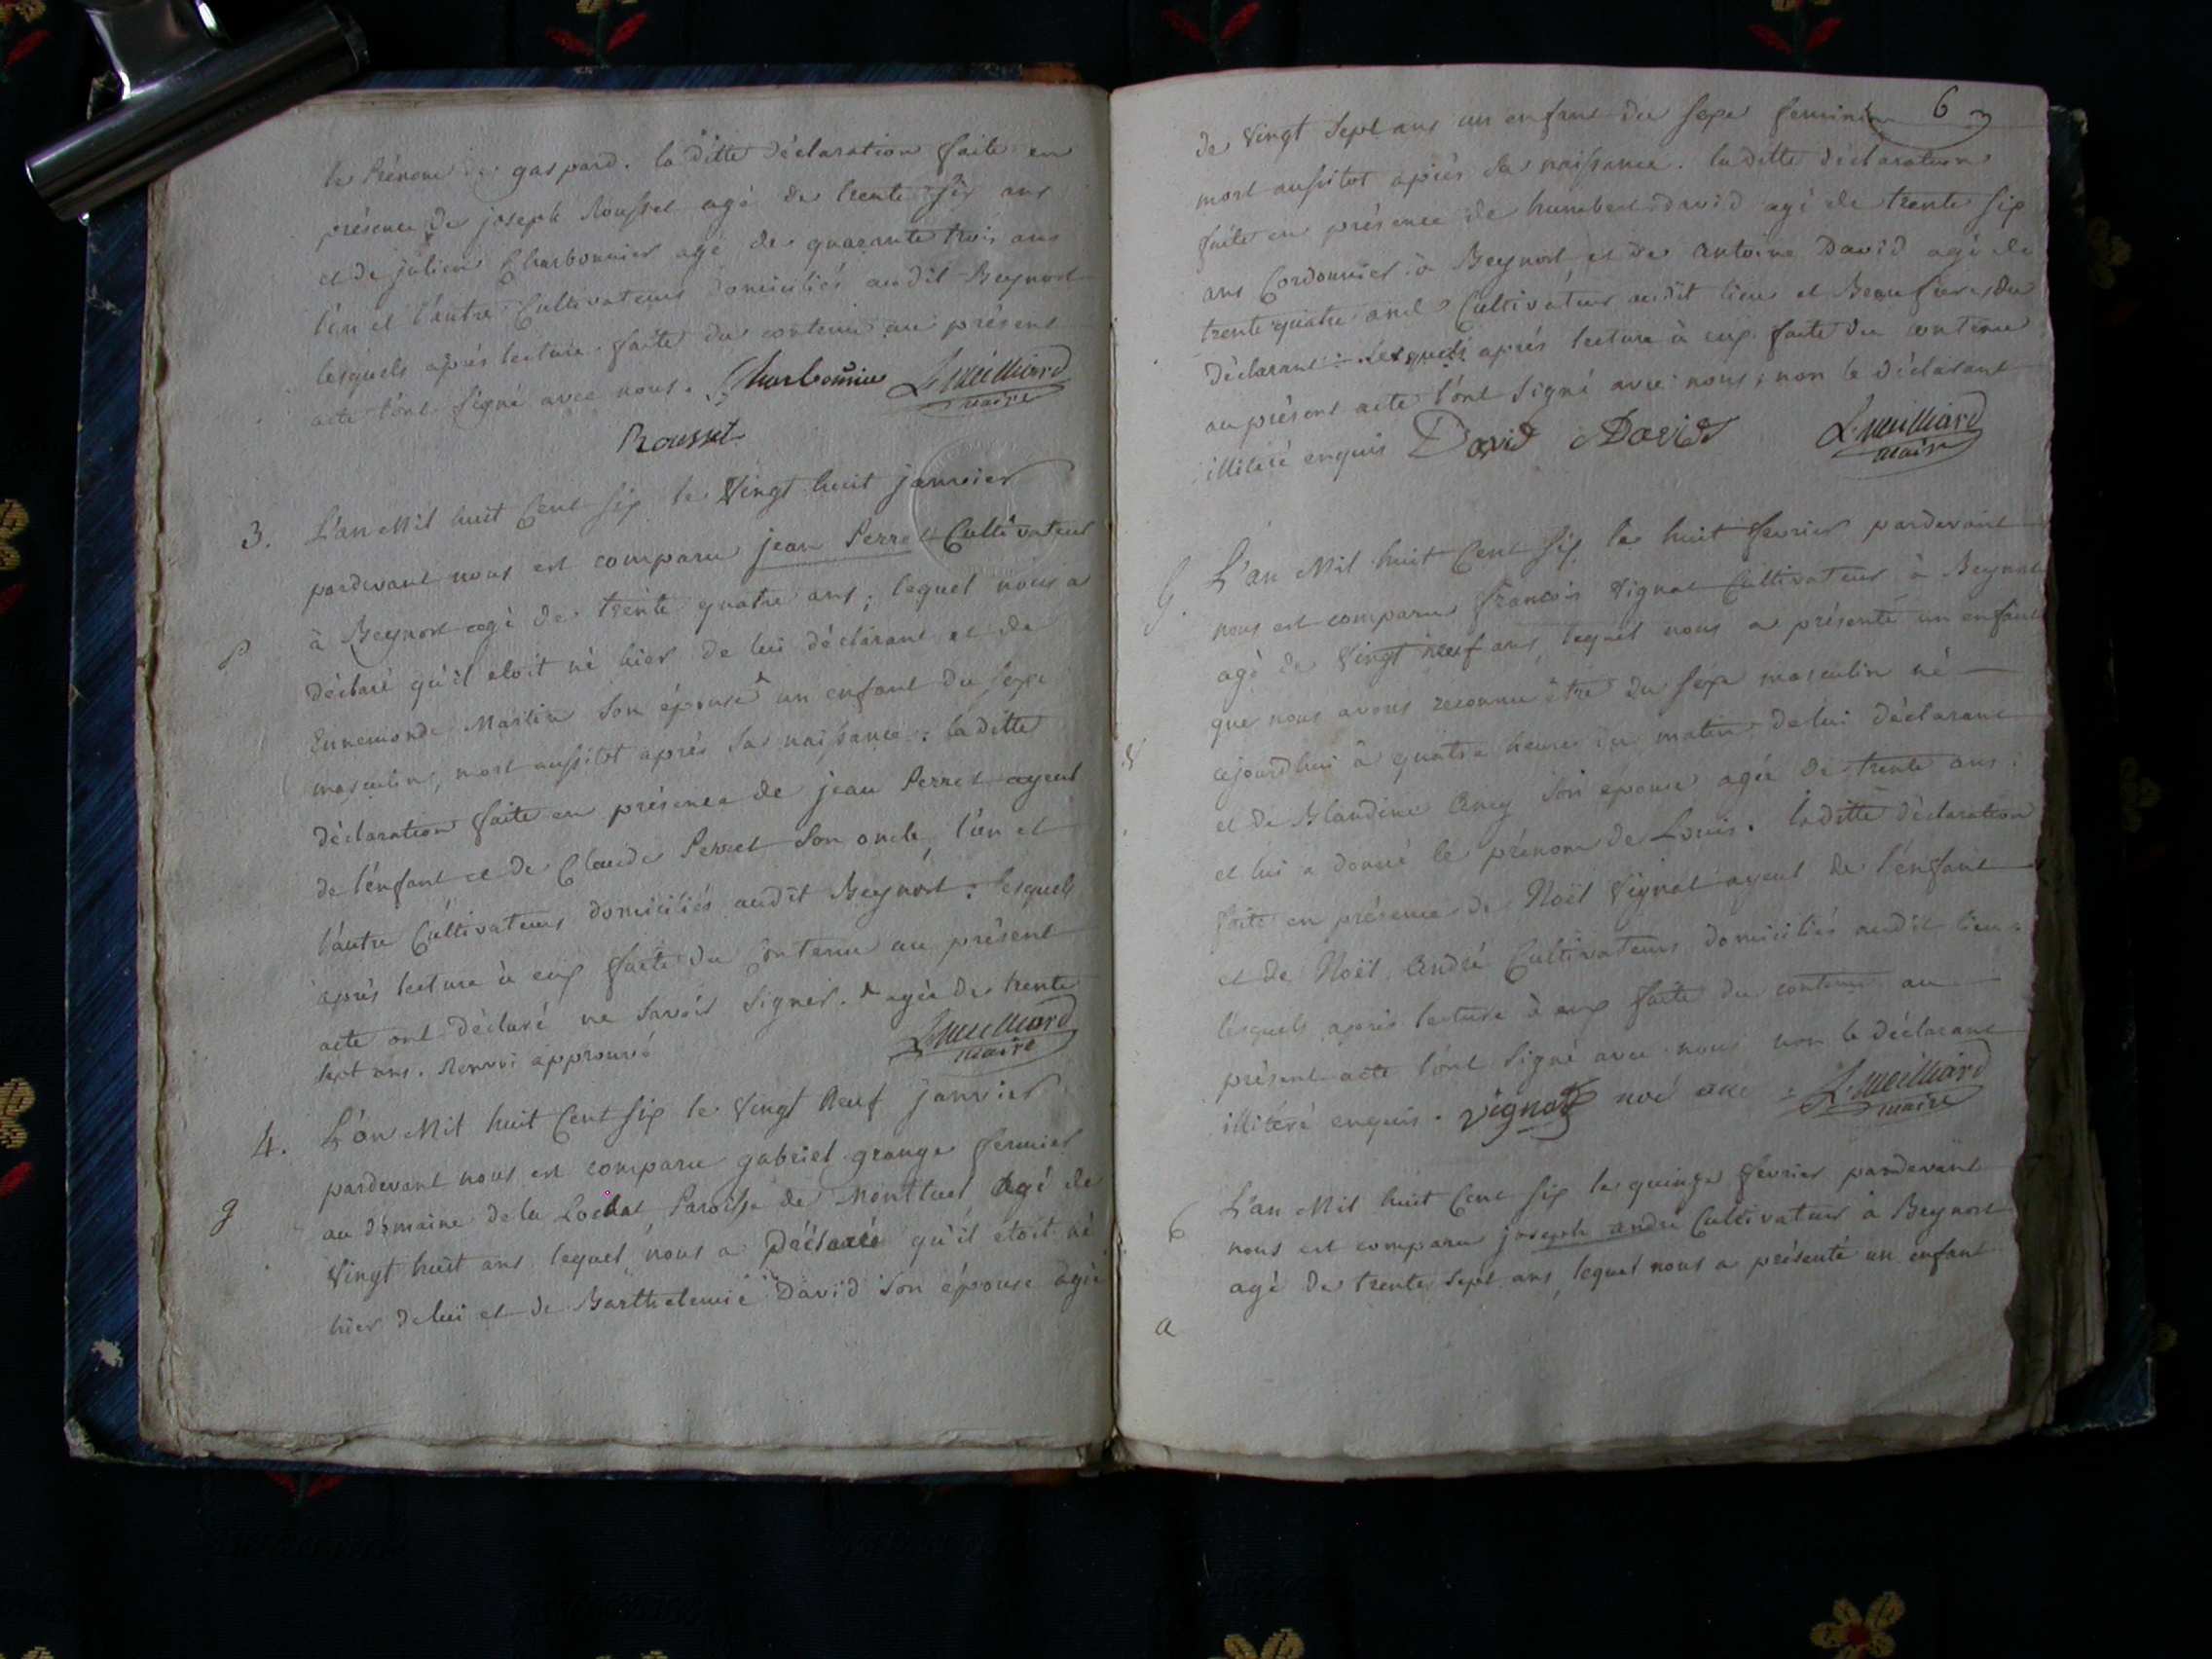 le Prénom de gaspard. la ditte déclaration faite en
présence de joseph Rousset agé de trente six ans
et de julien Charbonnier agé de quarante trois ans
l'un et l'autre Cultivateurs domiciliés audit Beynost
lesquels après lecture faite du contenu au présent
acte l'ont signé avec nous. Charbonnier L. Meilliard
maire
Rousset
3. L'an Mil huit Cent six le Vingt huit janvier
pardevant nous est comparu jean Perret Cultivateur
à Beynost agé de trente quatre ans; lequel nous a
P
déclaré qu'il etoit né hier de lui déclarant et de
Ennemonde Martin son épouse ^ un enfant du sexe
masculin, mort aussitot après sa naissance: la ditte
déclaration faite en présence de jean Perret ayeul
de l'enfant et de Claude Perret son oncle, l'un et
l'autre Cultivateurs domiciliés audit Beynost: lesquels
après lecture à eux faite du contenu au présent
acte ont déclaré ne savoir signer. ^ agée de trente
sept ans. Renvoi approuvé L. Meilliard
maire
4. L'an Mil huit Cent six le Vingt Neuf janvier
pardevant nous est comparu gabriel grange fermier
au domaine de la Paroisse de Montluel Agé de
g
Vingt huit ans lequel nous a Déclaré qu'il étoit né
hier de lui et de Barthelemie David son épouse agée
6
de Vingt Sept ans un enfant du sexe feminin
mort aussitot après sa naissance. la ditte déclaration
faite en présence de humbert david agé de trente six
ans Cordonnier à Beynost, et de antoine David agé de
trente quatre ans Cultivateur audit lieu et Beaufrere du
déclarant. Lesquels après lecture à eux faite du contenu
au présent acte l'ont signé avec nous, non le déclarant
illiteré enquis David David L. Meilliard
maire
5. L'an Mil huit Cent six le huit fevrier pardevant
nous est comparu francois Vignat Cultivateur à Beynost
agé de Vingt neuf ans, lequel nous a présenté un enfant
que nous avons reconnu être du sexe masculin né
cejourdhui à quatre heures du matin de lui déclarant
et de Blandine Ancy son epouse agée de trente ans
et lui a donné le prénom de Louis. laditte déclaration
faite en présence de Noël Vignat ayeul de l'enfant
et de Noël André Cultivateurs domiciliés audit lieu:
lesquels après lecture à eux faite du contenu au
présent acte l'ont signé avec nous non le déclarant
illiteré enquis. Vignat noé L. Meilliard
maire
6 L'an Mil huit Cent six le quinze fevrier pardevant
nous est comparu joseph andré Cultivateur à Beynost
agé de trente sept ans, lequel nous a présenté un enfant
a